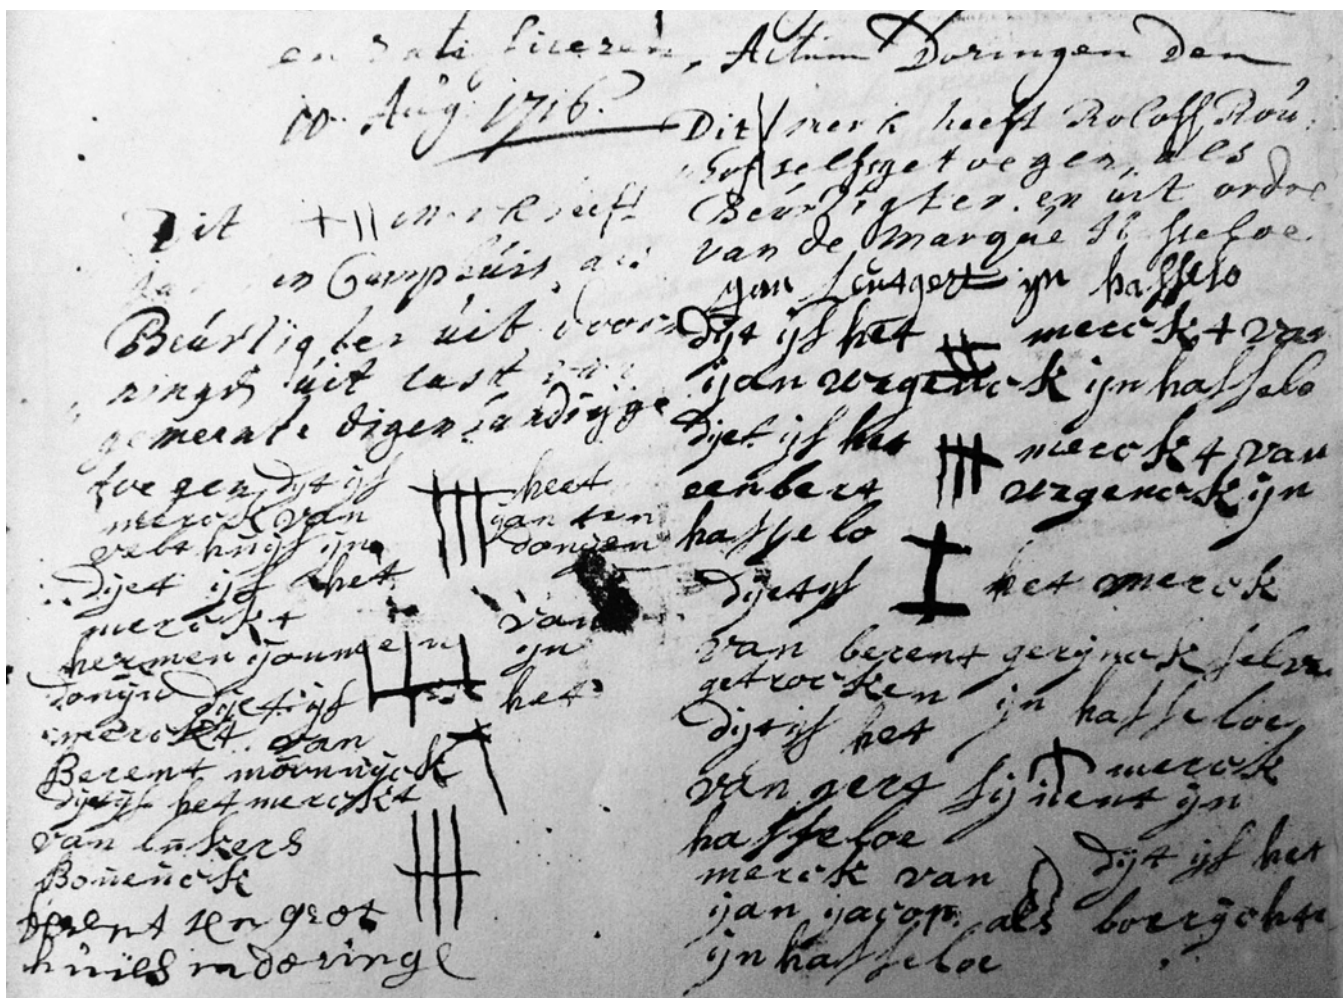 en ratificeren, Actum Doringen den
10. Aug. 1716.
Dit merk heeft
in Camphuis, als
Beurrigter uit door
ninge uit last van
gemeente eigenhandigge
toegen, dijt ijs heet
merck van ijan ten
velthuijs ijn donijen
dijet ijs het
merckt van
hermen ijonmein ijn
donijn dijet ijs het
merckt van
Berent monninck
dijt ijs het merckt
van lukers
Bonenck
berent ten grot
huijes in doringe
Dit merk heeft Roloff Rou
hof selfs getoegen als
Beurrigter en uit ordre
van de Marque Hasseloe
ijan Lutgert ijn hasselo
dijt ijs het merckt van
ijan wegenck ijn hasselo
dijet ijs het merckt van
eenbert wegenck ijn
hasselo
dijet ijs het merck
van berent gerijnck selve
getrocken ijn hasseloe
dijt ijs het merck
van gert sijnent ijn
hasseloe dijt ijs het
merck van
ijan ijacop als boerijchter
ijn hasseloe